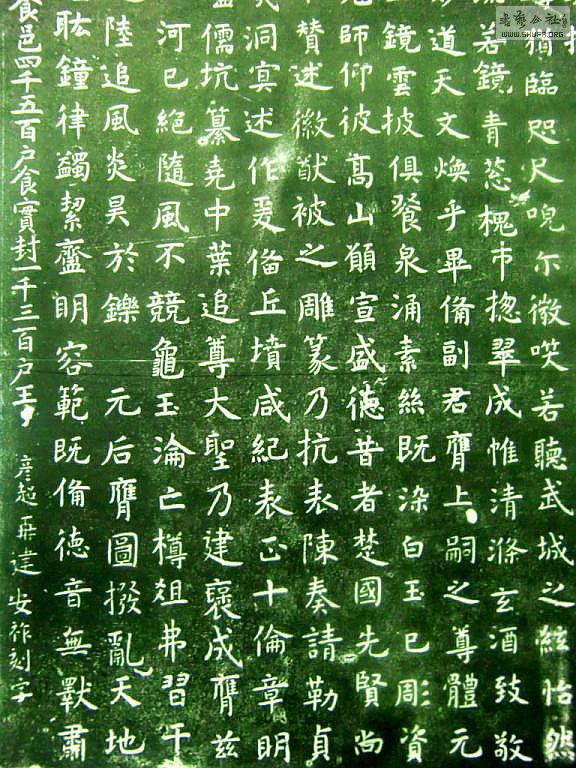 書藝公社
WWW.SHUFA.ORG
臨咫尺唲尒微咲若聽武城之絃怡然
若鏡青葱槐市揔翠成帷清滌玄酒致敬
道天文煥乎畢備副君膺上嗣之尊體元
鏡雲披俱飡泉涌素絲既染白玉已彫資
師仰彼高山願宣盛德昔者楚國先賢尚
贊述徽猷被之雕篆乃抗表陳奏請勒貞
洞寞述作爰備丘墳咸紀表正十倫章明
儒坑纂堯中葉追尊大聖乃建褒成膺茲
河已絕隨風不競龜玉淪亡樽俎弗習干
陸追風炎昊於鑠 元后膺圖撥亂天地
肱鐘律蠲絜齍明容範既備德音無斁肅
食邑四千五百戶食實封一千三百戶王彥超再建 安祚刻字